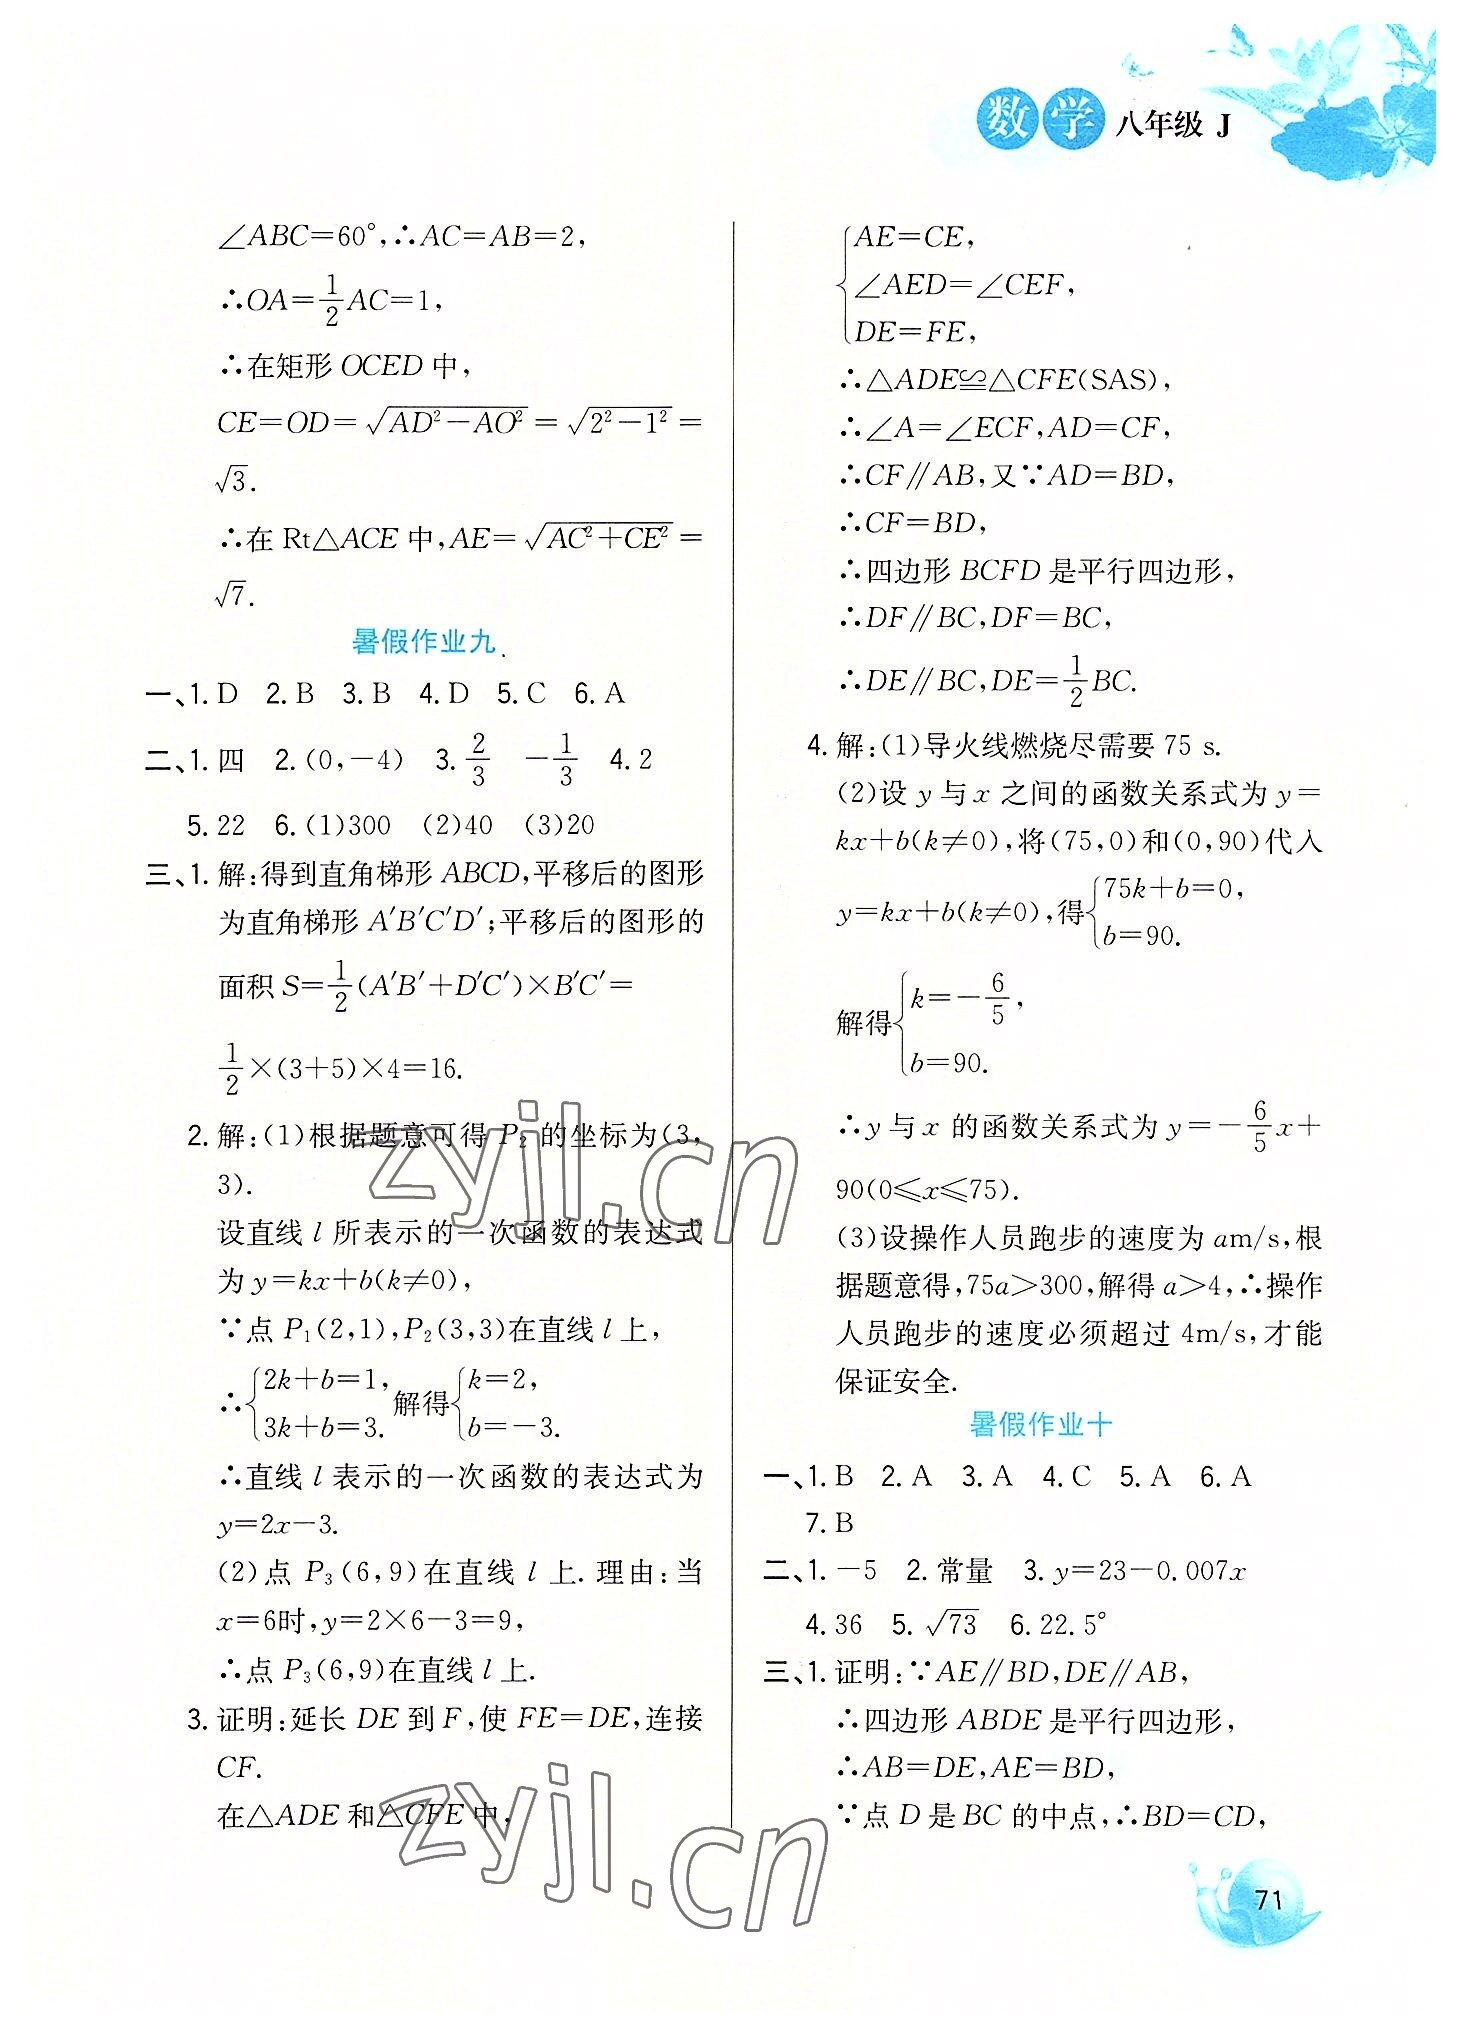 数学 八年级 J
∠ABC=60°,∴AC=AB=2,
∴OA=1/2AC=1,
∴在矩形 OCED 中,
CE=OD=√(AD²-AO²)=√(2²-1²)=
√3.
∴在 Rt△ACE 中,AE=√(AC²+CE²)=
√7.
暑假作业九
一、1. D 2. B 3. B 4. D 5. C 6. A
二、1. 四 2. (0,-4) 3. 2/3 -1/3 4. 2
5. 22 6. (1)300 (2)40 (3)20
三、1. 解:得到直角梯形 ABCD,平移后的图形
为直角梯形 A′B′C′D′;平移后的图形的
面积 S=1/2(A′B′+D′C′)×B′C′=
1/2×(3+5)×4=16.
2. 解:(1)根据题意可得 P₂ 的坐标为(3,
3).
设直线 l 所表示的一次函数的表达式
为 y=kx+b(k≠0),
∵点 P₁(2,1),P₂(3,3)在直线 l 上,
∴{2k+b=1, 3k+b=3. 解得{k=2, b=-3.
∴直线 l 表示的一次函数的表达式为
y=2x-3.
(2)点 P₃(6,9)在直线 l 上. 理由:当
x=6时,y=2×6-3=9,
∴点 P₃(6,9)在直线 l 上.
3. 证明:延长 DE 到 F,使 FE=DE,连接
CF.
在△ADE 和△CFE 中,
{AE=CE,
∠AED=∠CEF,
DE=FE,
∴△ADE≌△CFE(SAS),
∴∠A=∠ECF,AD=CF,
∴CF∥AB,又∵AD=BD,
∴CF=BD,
∴四边形 BCFD 是平行四边形,
∴DF∥BC,DF=BC,
∴DE∥BC,DE=1/2BC.
4. 解:(1)导火线燃烧尽需要 75 s.
(2)设 y 与 x 之间的函数关系式为 y=
kx+b(k≠0),将(75,0)和(0,90)代入
y=kx+b(k≠0),得{75k+b=0, b=90.
解得{k=-6/5, b=90.
∴y 与 x 的函数关系式为 y=-6/5x+
90(0≤x≤75).
(3)设操作人员跑步的速度为 am/s,根
据题意得,75a>300,解得 a>4,∴操作
人员跑步的速度必须超过 4m/s,才能
保证安全.
暑假作业十
一、1. B 2. A 3. A 4. C 5. A 6. A
7. B
二、1. -5 2. 常量 3. y=23-0.007x
4. 36 5. √73 6. 22.5°
三、1. 证明:∵AE∥BD,DE∥AB,
∴四边形 ABDE 是平行四边形,
∴AB=DE,AE=BD,
∵点 D 是 BC 的中点,∴BD=CD,
71
zyjl.cn
zyjl.cn